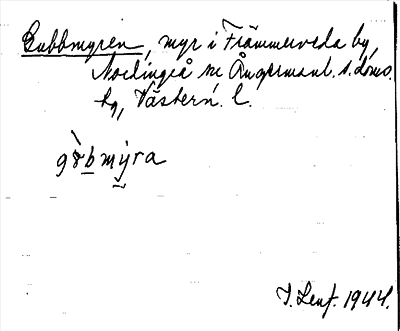 Gubbmyren, myr i Främmerveda by,
Nordingrå sn Ångermanl. s. doms.
hg, Västern. l.
gòbmýra
1944.